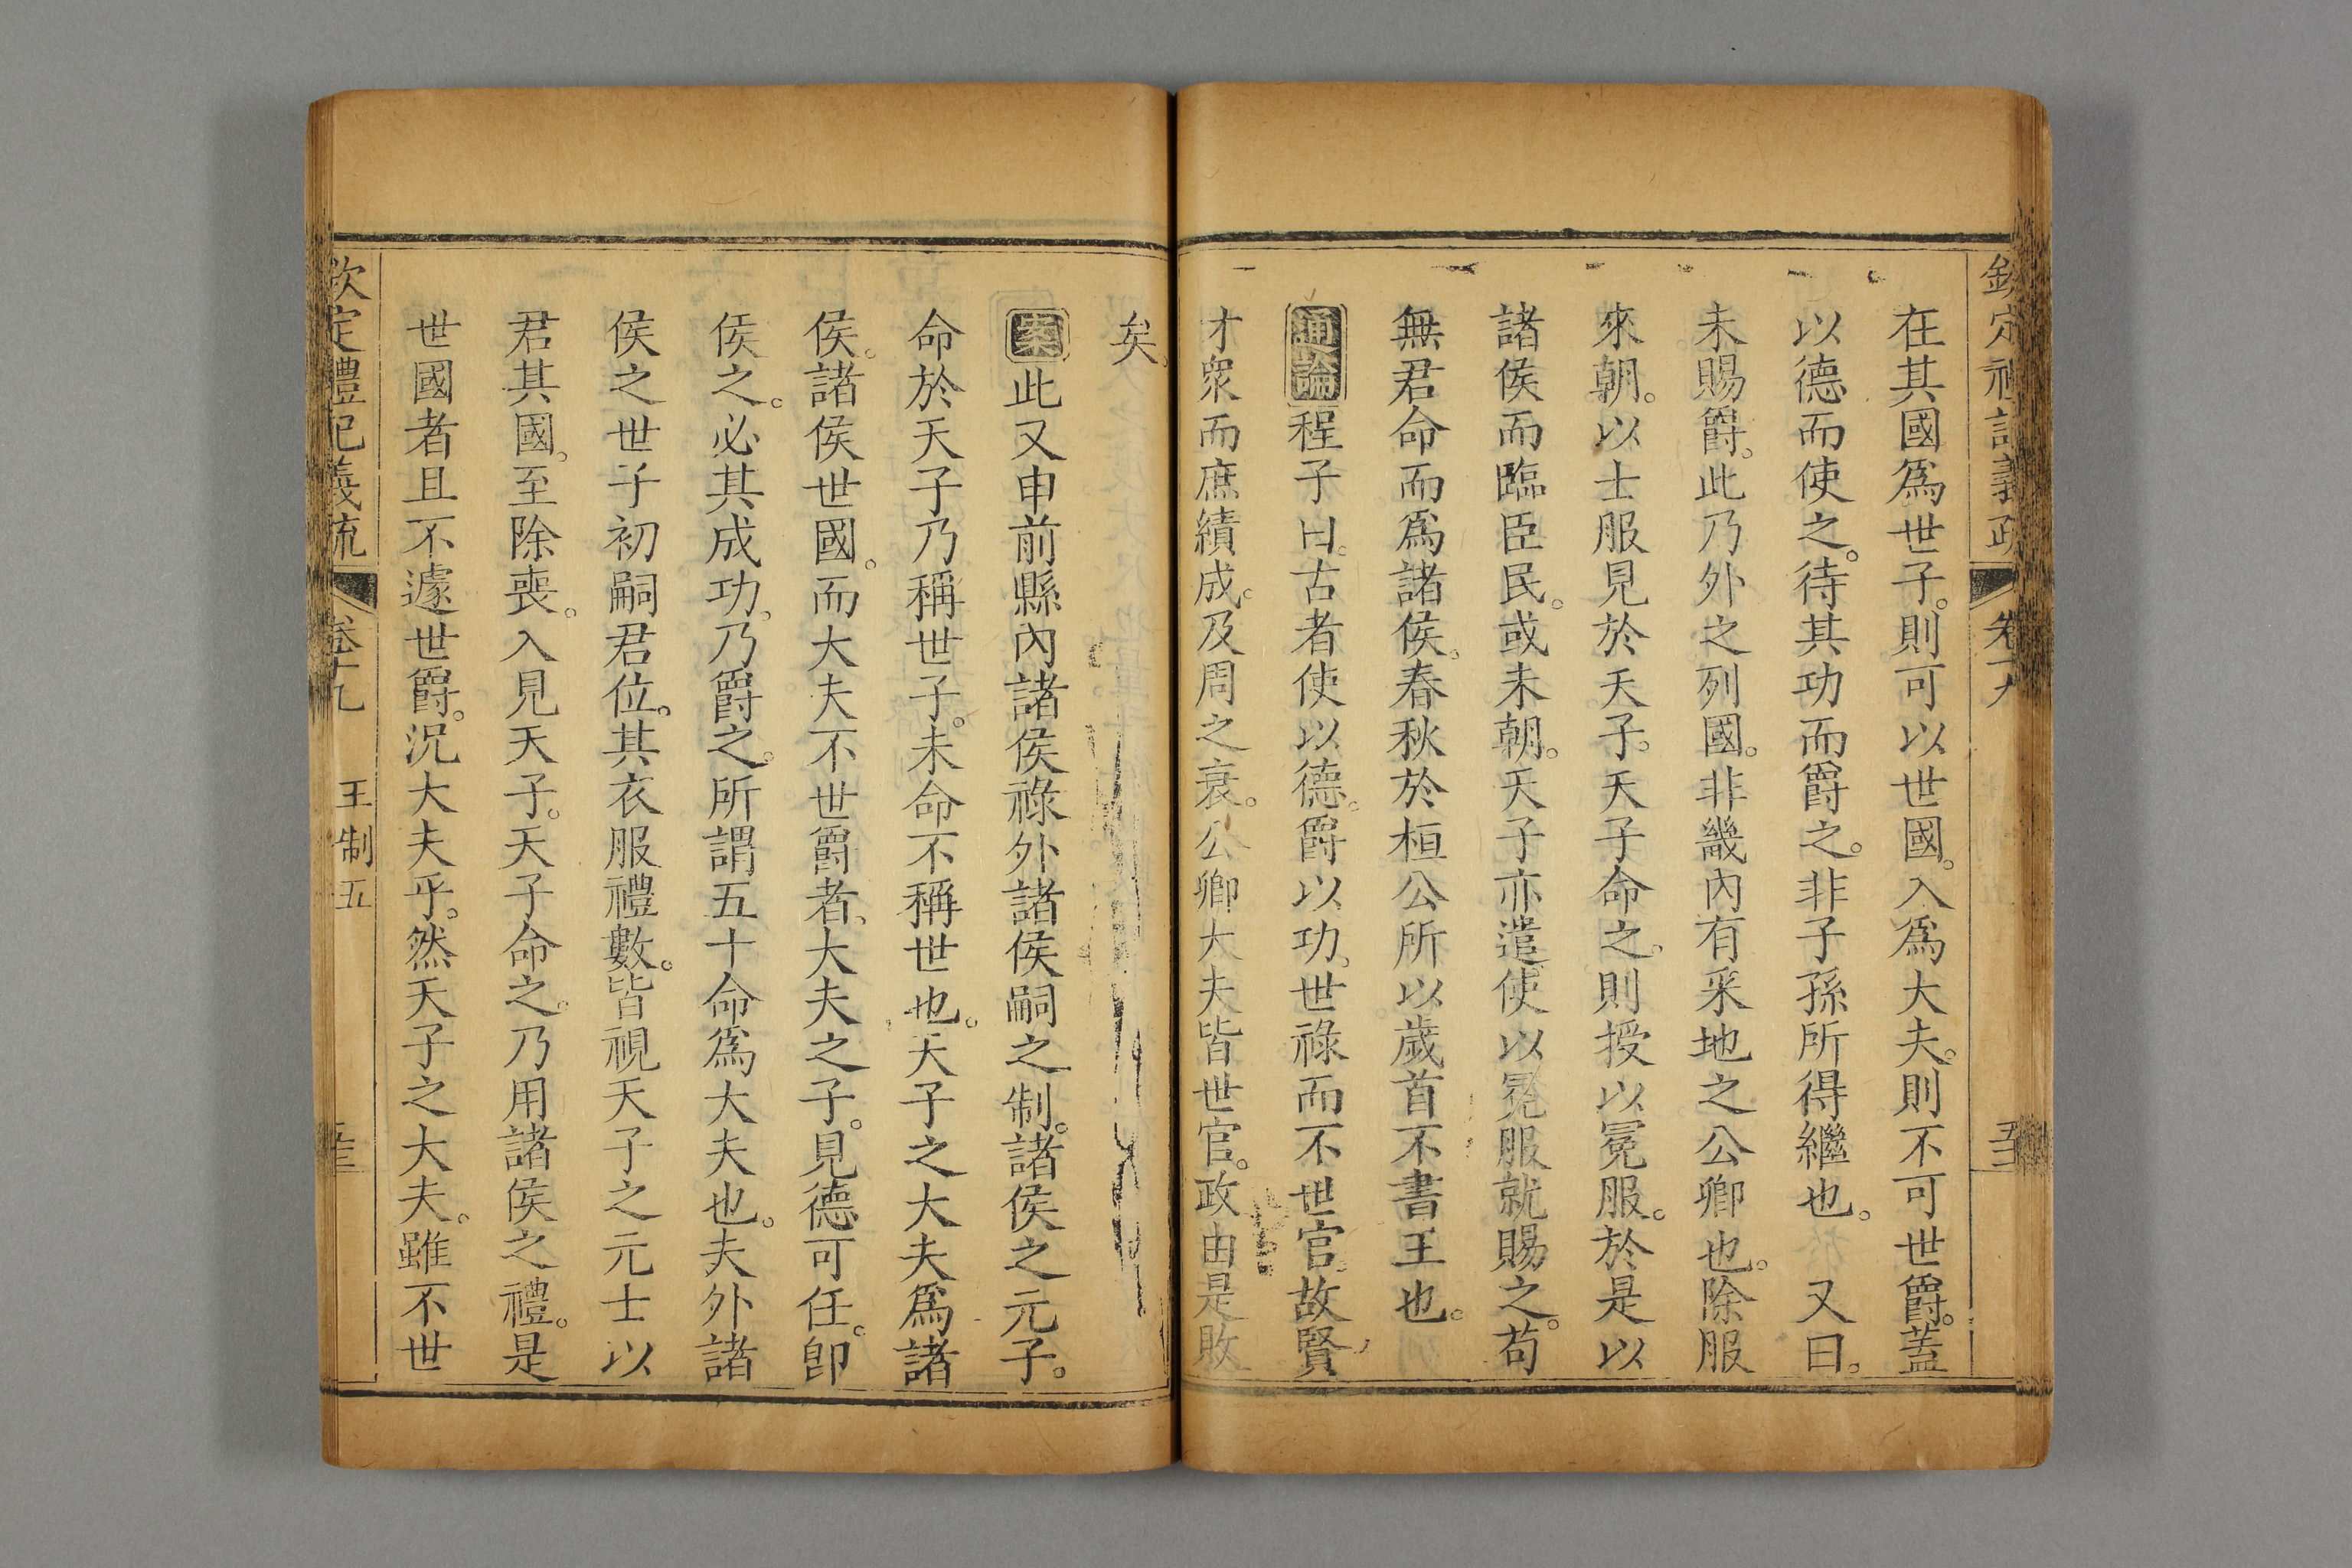 在其國爲世子。則可以世國。入爲大夫。則不可世爵。蓋
以德而使之。待其功而爵之。非子孫所得繼也。 又曰。
未賜爵。此乃外之列國。非畿內有采地之公卿也。除服
來朝。以士服見於天子。天子命之。則授以冕服。於是以
諸侯而臨臣民。或未朝。天子亦遣使以冕服就賜之。苟
無君命而爲諸侯。春秋於桓公所以歲首不書王也。
通論程子曰。古者使以德。爵以功。世祿而不世官。故賢
才衆而庶績成。及周之衰。公卿大夫皆世官。政由是敗
矣。
案此又申前縣內諸侯祿外諸侯嗣之制。諸侯之元子。
命於天子乃稱世子。未命不稱世也。天子之大夫爲諸
侯。諸侯世國。而大夫不世爵者、大夫之子。見德可任。卽
侯之。必其成功、乃爵之。所謂五十命爲大夫也。夫外諸
侯之世子初嗣君位。其衣服禮數。皆視天子之元士以
君其國。至除喪。入見天子。天子命之。乃用諸侯之禮。是
世國者且不遽世爵。況大夫乎。然天子之大夫。雖不世
欽定禮記義疏 卷十九 王制五